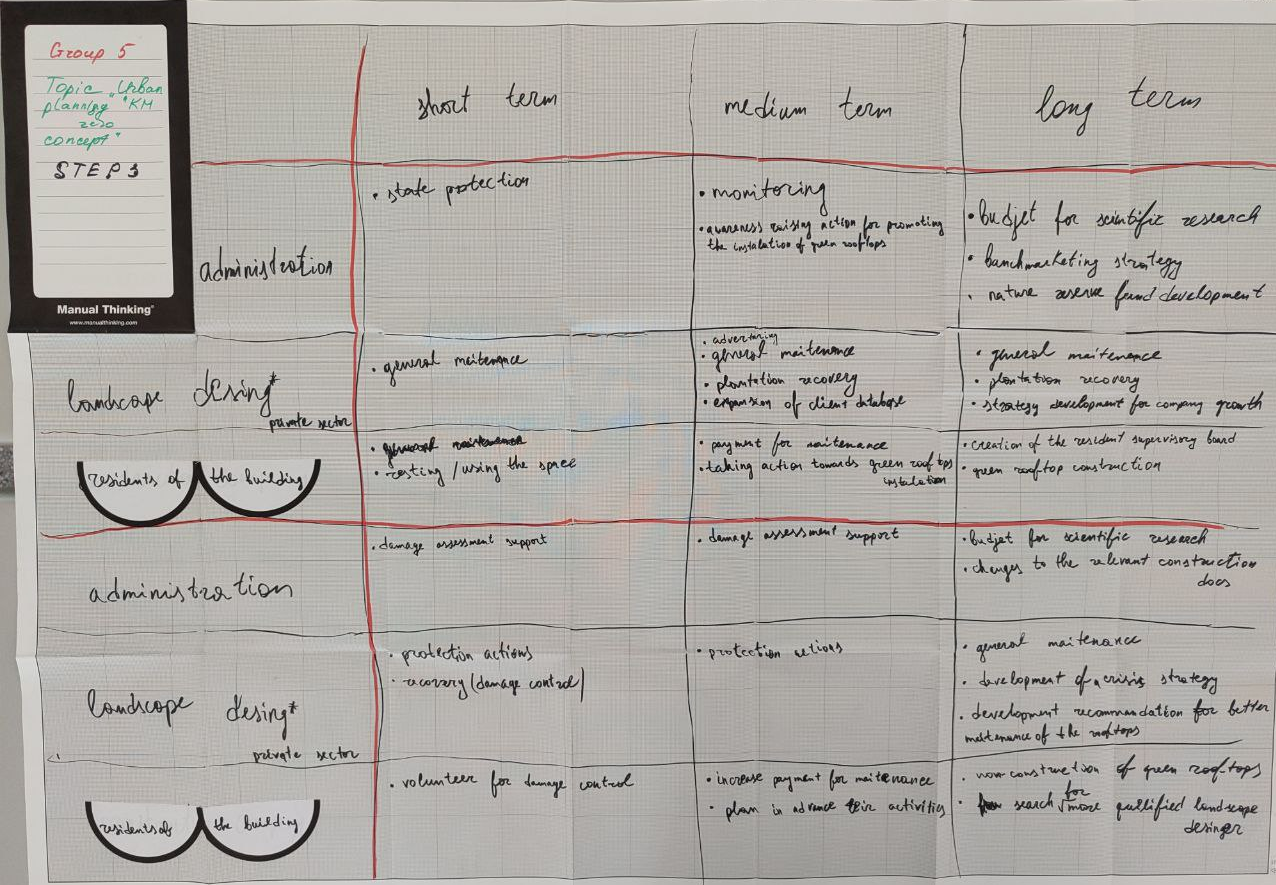 Group 5
Topic „Urban
planning "KM
zero
concept"
STEP 3
Manual Thinking®
www.manualthinking.com
short term
medium term
long term
administration
• state protection
• monitoring
• awareness raising action for promoting
the instalation of green rooftops
• budjet for scientific research
• banchmarketing strategy
• nature reserve fund development
landscape desing*
private sector
• general maitenance
• advertising
• general maitenance
• plantation recovery
• expansion of client database
• general maitenance
• plantation recovery
• strategy development for company growth
residents of the building
• resting / using the space
• payment for maitenance
• taking action towards green rooftops
instalation
• creation of the resident supervisory board
• green rooftop construction
administration
• damage assessment support
• damage assessment support
• budjet for scientific research
• changes to the relevant construction
docs
landscape desing*
private sector
• protection actions
• recovery (damage control)
• protection actions
• general maitenance
• development of a crisis strategy
• development recommandation for better
maitenance of the rooftops
residents of the building
• volunteer for damage control
• increase payment for maitenance
• plan in advance their activities
• construction of green rooftops
• search for more qullified landscape
desinger